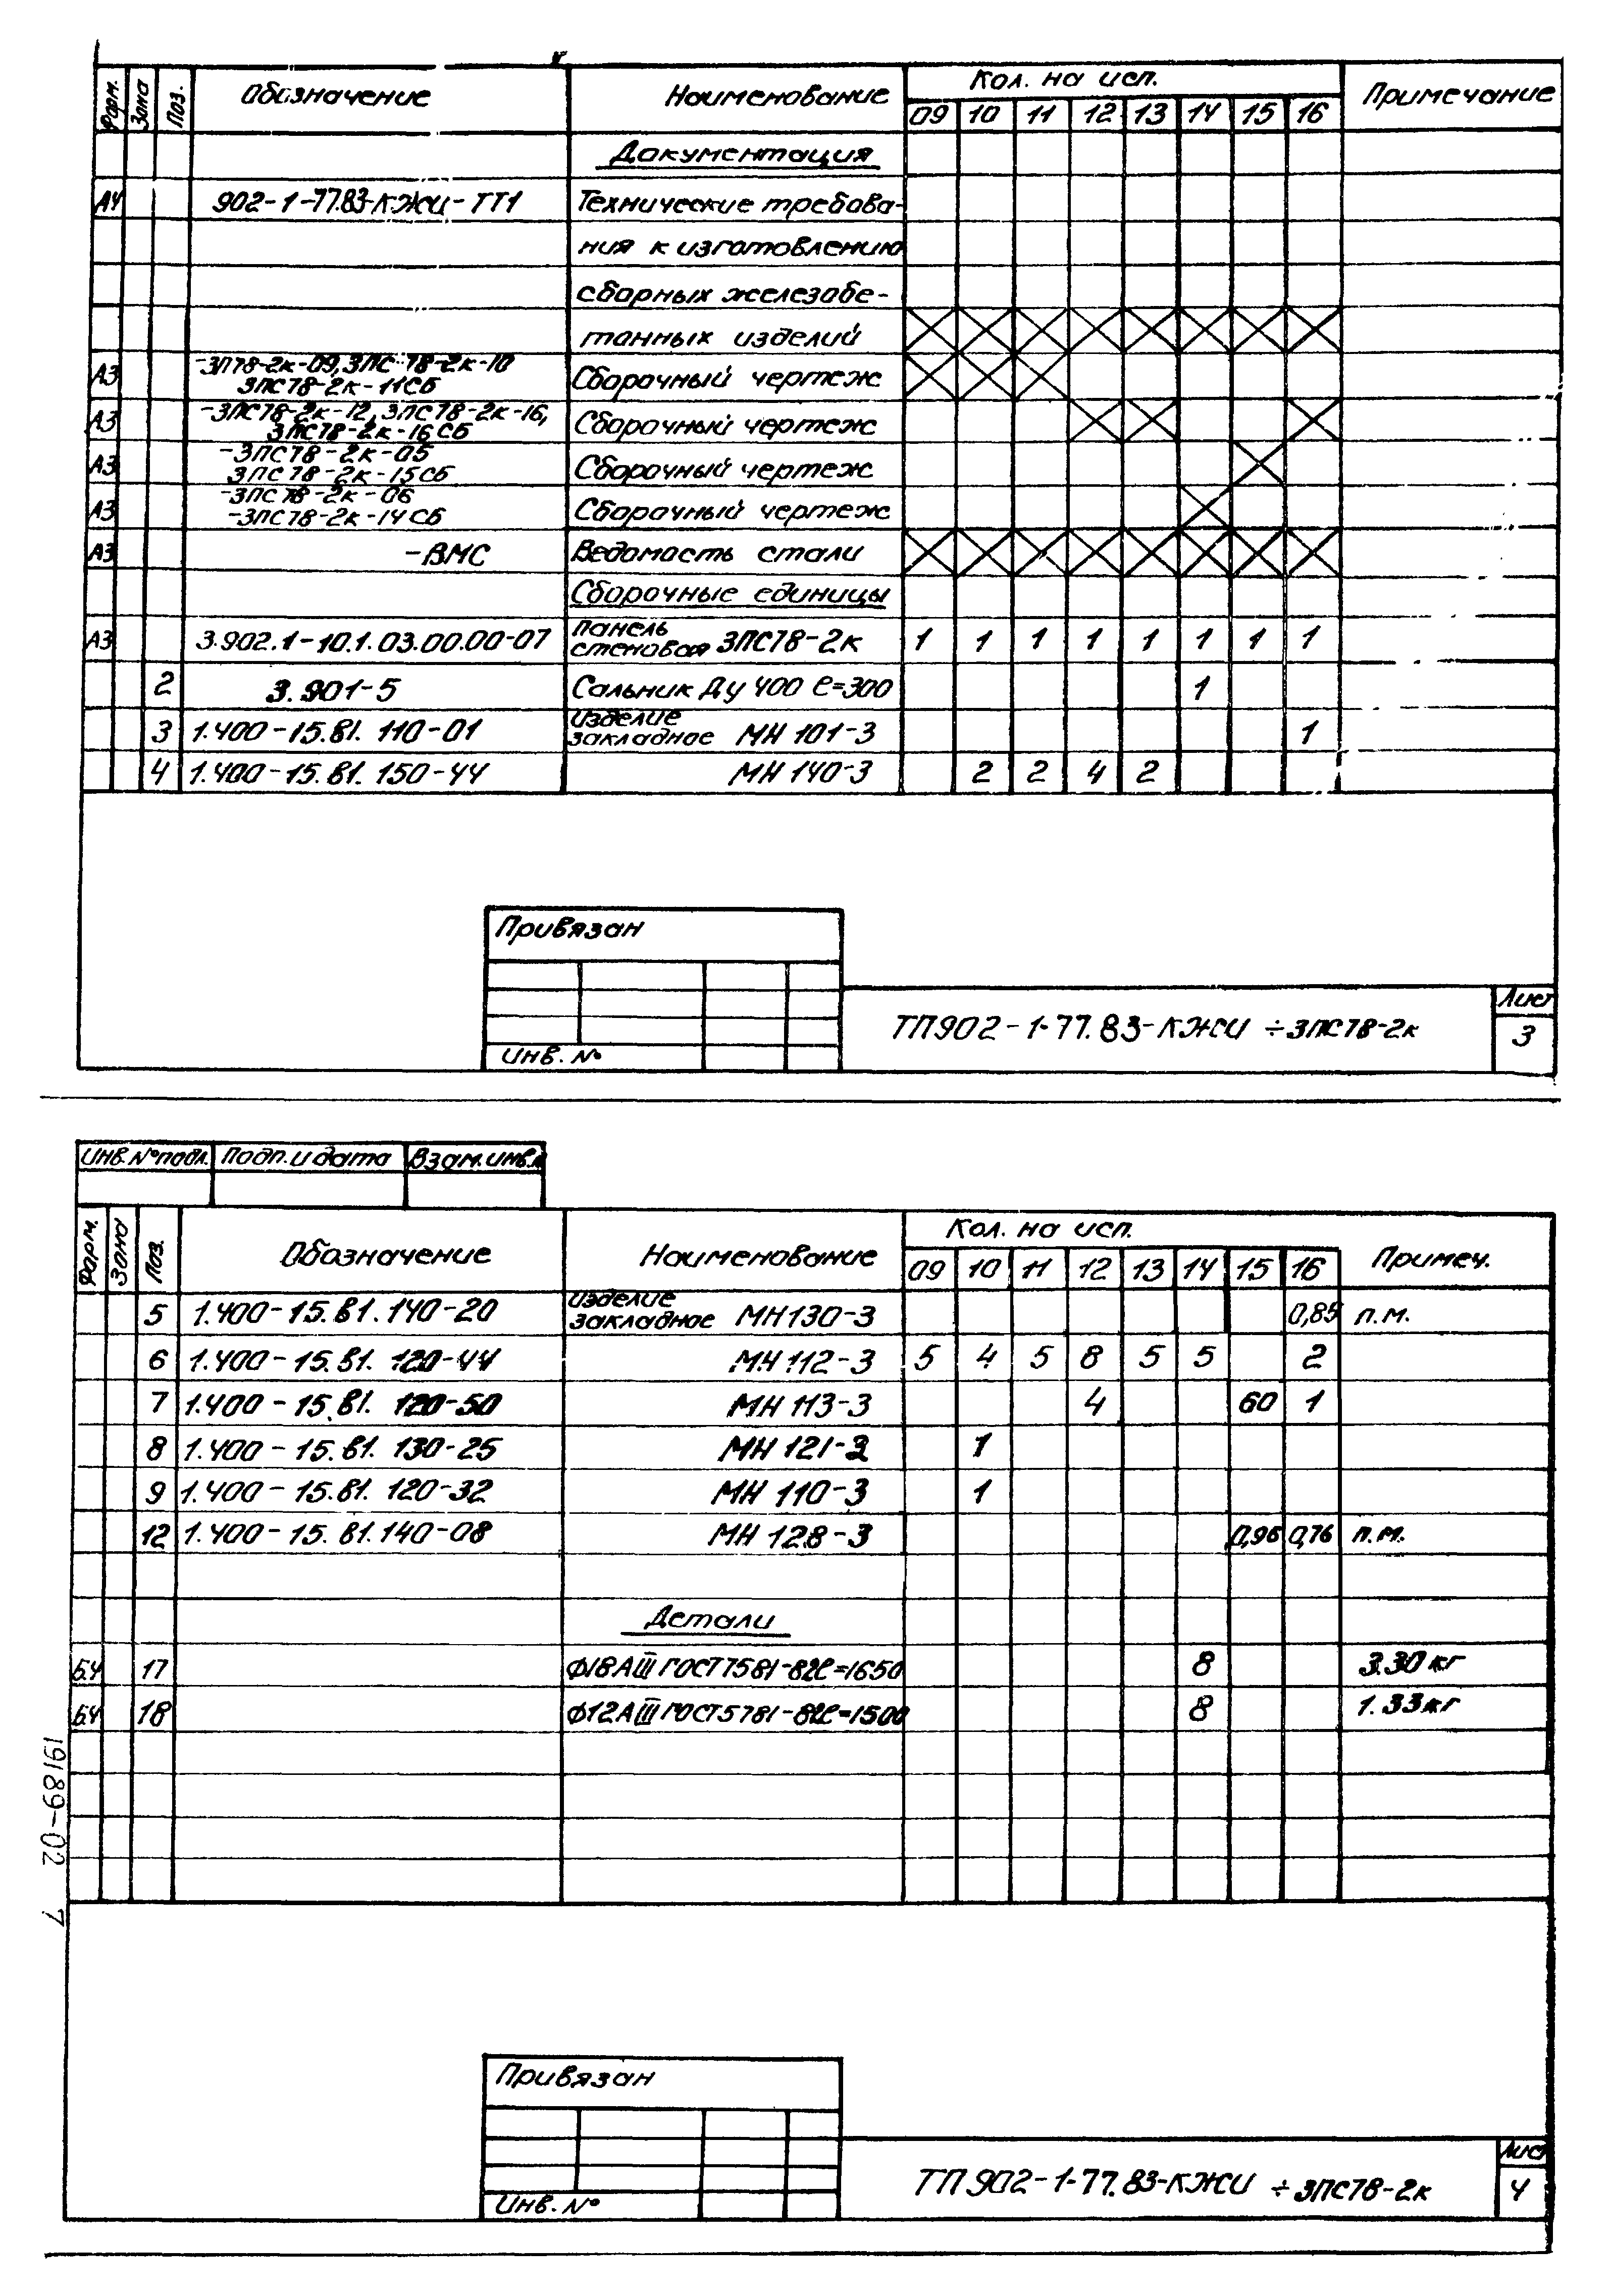 Форм. Зона Поз. Обозначение Наименование Кол. на исп. Примечание
09 10 11 12 13 14 15 16
Документация
А4 902-1-77.83-КЖИ-ТТ1 Технические требова-
ния к изготовлению
сборных железобе-
тонных изделий
-3П78-2к-09, 3ПС 78-2к-10
А3 3ПС78-2к-11СБ Сборочный чертеж
-3ПС78-2к-12, 3ПС78-2к-16,
А3 3ПС78-2к-16СБ Сборочный чертеж
-3ПС78-2к-05
А3 3ПС78-2к-15СБ Сборочный чертеж
-3ПС78-2к-06
А3 -3ПС78-2к-14СБ Сборочный чертеж
А3 -ВМС Ведомость стали
Сборочные единицы
А3 3.902.1-10.1.03.00.00-07 Панель стеновая 3ПС78-2к 1 1 1 1 1 1 1 1
2 3.901-5 Сальник Ду 400 ℓ=300 1
3 1.400-15.В1.110-01 Изделие закладное МН 101-3 1
4 1.400-15.В1.150-44 МН 140-3 2 2 4 2
Привязан
Инв. №
ТП902-1-77.83-КЖИ ÷3ПС78-2к
Лист
3
Инв.№подл. Подп. и дата Взам.инв.№
Форм. Зона Поз. Обозначение Наименование Кол. на исп. Примеч.
09 10 11 12 13 14 15 16
5 1.400-15.В1.140-20 Изделие закладное МН130-3 0,85 п.м.
6 1.400-15.В1.120-44 МН 112-3 5 4 5 8 5 5 2
7 1.400-15.В1.120-50 МН 113-3 4 60 1
8 1.400-15.В1.130-25 МН 121-3 1
9 1.400-15.В1.120-32 МН 110-3 1
12 1.400-15.В1.140-08 МН 128-3 0,96 0,76 п.м.
Детали
Б.Ч 17 Ф18АIII ГОСТ7581-82ℓ=1650 8 3.30 кг
Б.Ч 18 Ф12АIII ГОСТ5781-82ℓ=1500 8 1.33кг
19189-02 7
Привязан
Инв. №
ТП902-1-77.83-КЖИ ÷3ПС78-2к
Лист
4